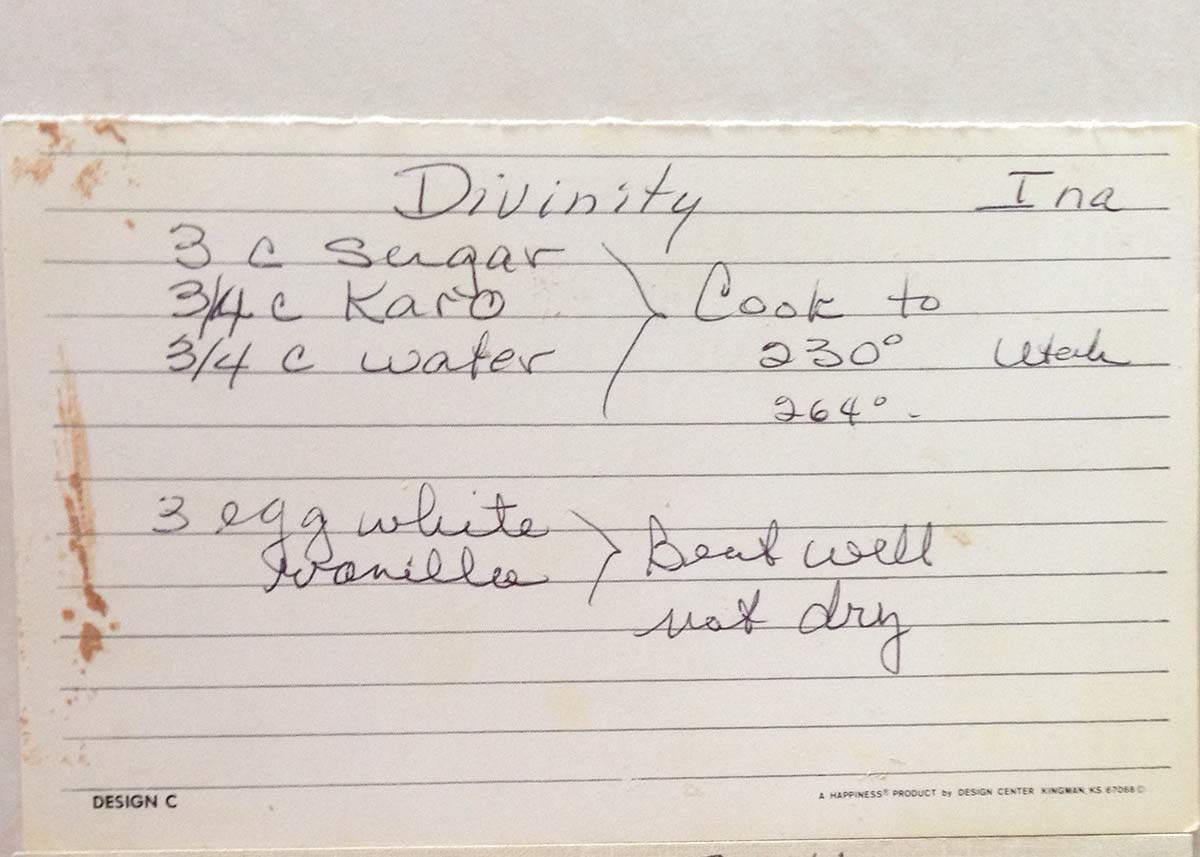 Divinity Ina
3 c Sugar
3/4 c Karo Cook to
3/4 c water 230° Utah
264° -
3 egg white
vanilla Beat well
not dry
DESIGN C A HAPPINESS® PRODUCT by DESIGN CENTER KINGMAN, KS. 67068 ©